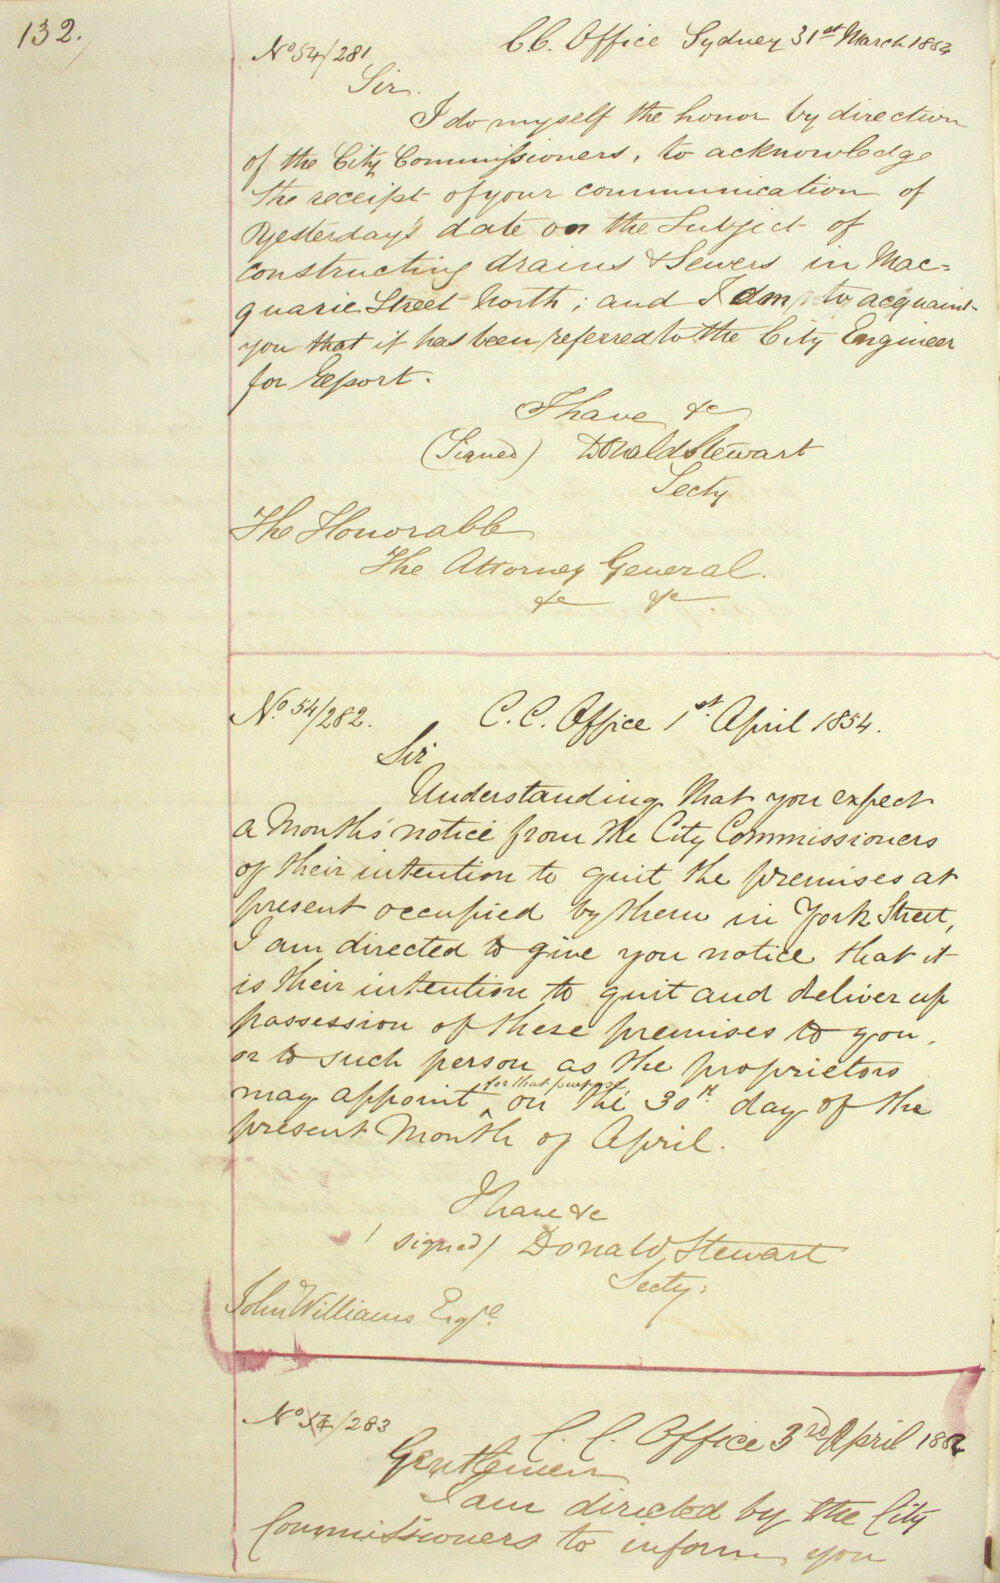 132.
No 54/281 C.C. Office Sydney 31st March 1854
Sir.
I do myself the honor by direction
of the City Commissioners, to acknowledge
the receipt of your communication of
Yesterday's date on the Subject of
constructing drains & Sewers in Mac=
quarie Street North; and I am to acquaint
you that it has been referred to the City Engineer
for Report.
I have &c
(Signed) Donald Stewart
Secty
The Honorable
The Attorney General.
&c &c
No. 54/282. C.C. Office 1st. April 1854.
Sir
Understanding that you expect
a Month's notice from the City Commissioners
of their intention to quit the premises at
present occupied by them in York Street,
I am directed to give you notice that it
is their intention to quit and deliver up
possession of these premises to you,
or to such person as the proprietors
may appoint ^ for that purpose on the 30th day of the
present Month of April.
I have &c
(signed) Donald Stewart
Secty:
John Williams Esqre.
No 54/283 C.C. Office 3rd April 1854
Gentlemen
I am directed by the City
Commissioners to inform you